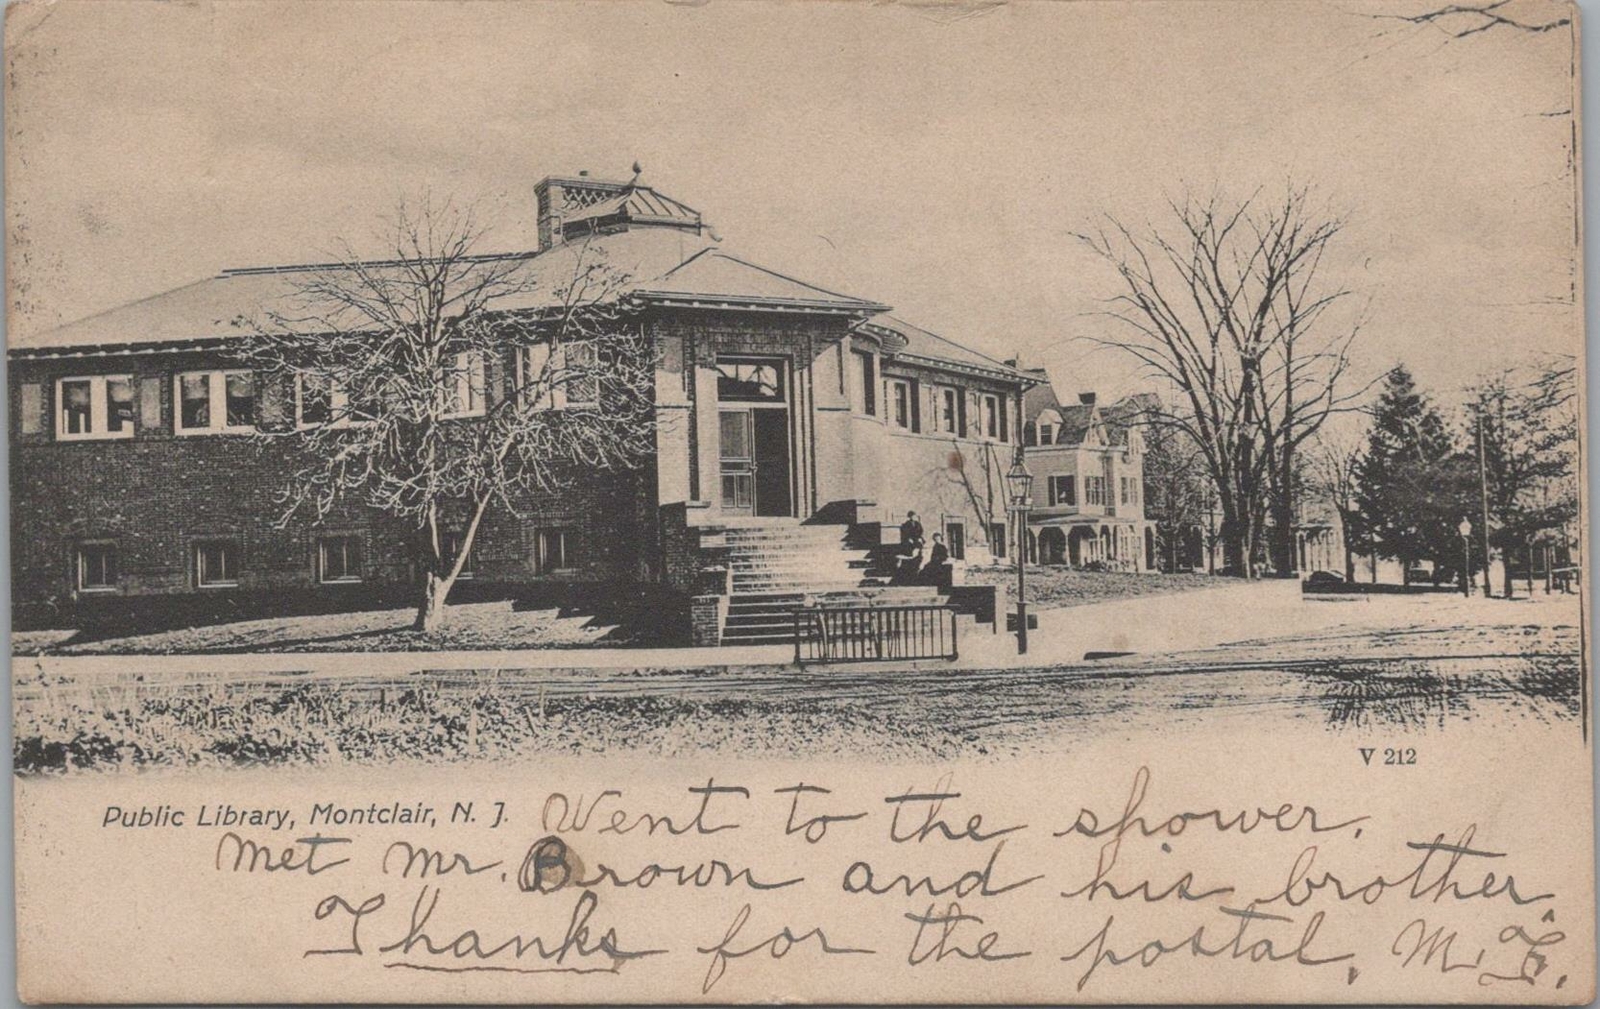 V 212
Public Library, Montclair, N. J. Went to the shower.
Met Mr. Brown and his brother.
Thanks for the postal. M. F.